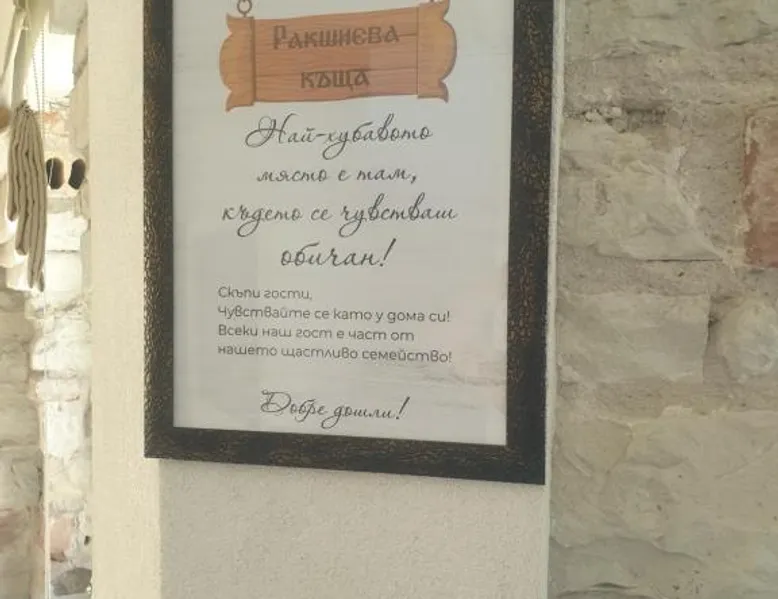 Ракшиева
къща
Най-хубавото
място е там,
където се чувстваш
обичан!
Скъпи гости,
Чувствайте се като у дома си!
Всеки наш гост е част от
нашето щастливо семейство!
Добре дошли!